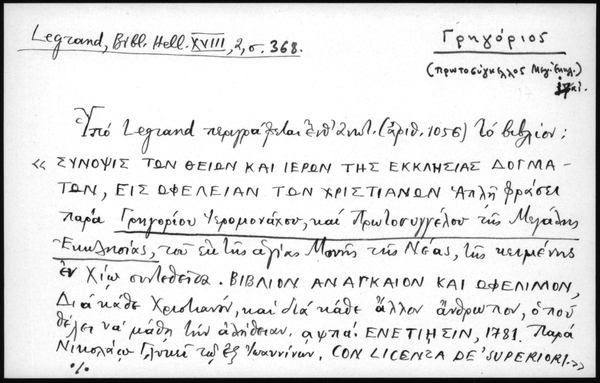 Legrand, Bibl. Hell. XVIII, 2, σ. 368.
Γρηγόριος
(πρωτοσύγκελλος Μεγ. Εκκλ.)
Ὑπό Legrand περιγράφεται ἐνθ' ἀνωτ. (ἀριθ. 1056) τό βιβλίον:
« ΣΥΝΟΨΙΣ ΤΩΝ ΘΕΙΩΝ ΚΑΙ ΙΕΡΩΝ ΤΗΣ ΕΚΚΛΗΣΙΑΣ ΔΟΓΜΑ-
ΤΩΝ, ΕΙΣ ΩΦΕΛΕΙΑΝ ΤΩΝ ΧΡΙΣΤΙΑΝΩΝ Ἁπλῇ φράσει
παρά Γρηγορίου Ἱερομονάχου, καί Πρωτοσυγγέλου τῆς Μεγάλης
Ἐκκλησίας, τοῦ ἐκ τῆς ἁγίας Μονῆς τῆς Νέας, τῆς κειμένης
ἐν Χίῳ συντεθεῖσα. ΒΙΒΛΙΟΝ ΑΝΑΓΚΑΙΟΝ ΚΑΙ ΩΦΕΛΙΜΟΝ,
Διά κάθε Χριστιανόν, καί διά κάθε ἄλλον ἄνθρωπον, ὁποῦ
θέλει νά μάθῃ τήν ἀλήθειαν. αψπα΄. ΕΝΕΤΙΗΣΙΝ, 1781. Παρά
Νικολάῳ Γλυκεῖ τῷ ἐξ Ἰωαννίνων. CON LICENZA DE' SUPERIORI. »
./.